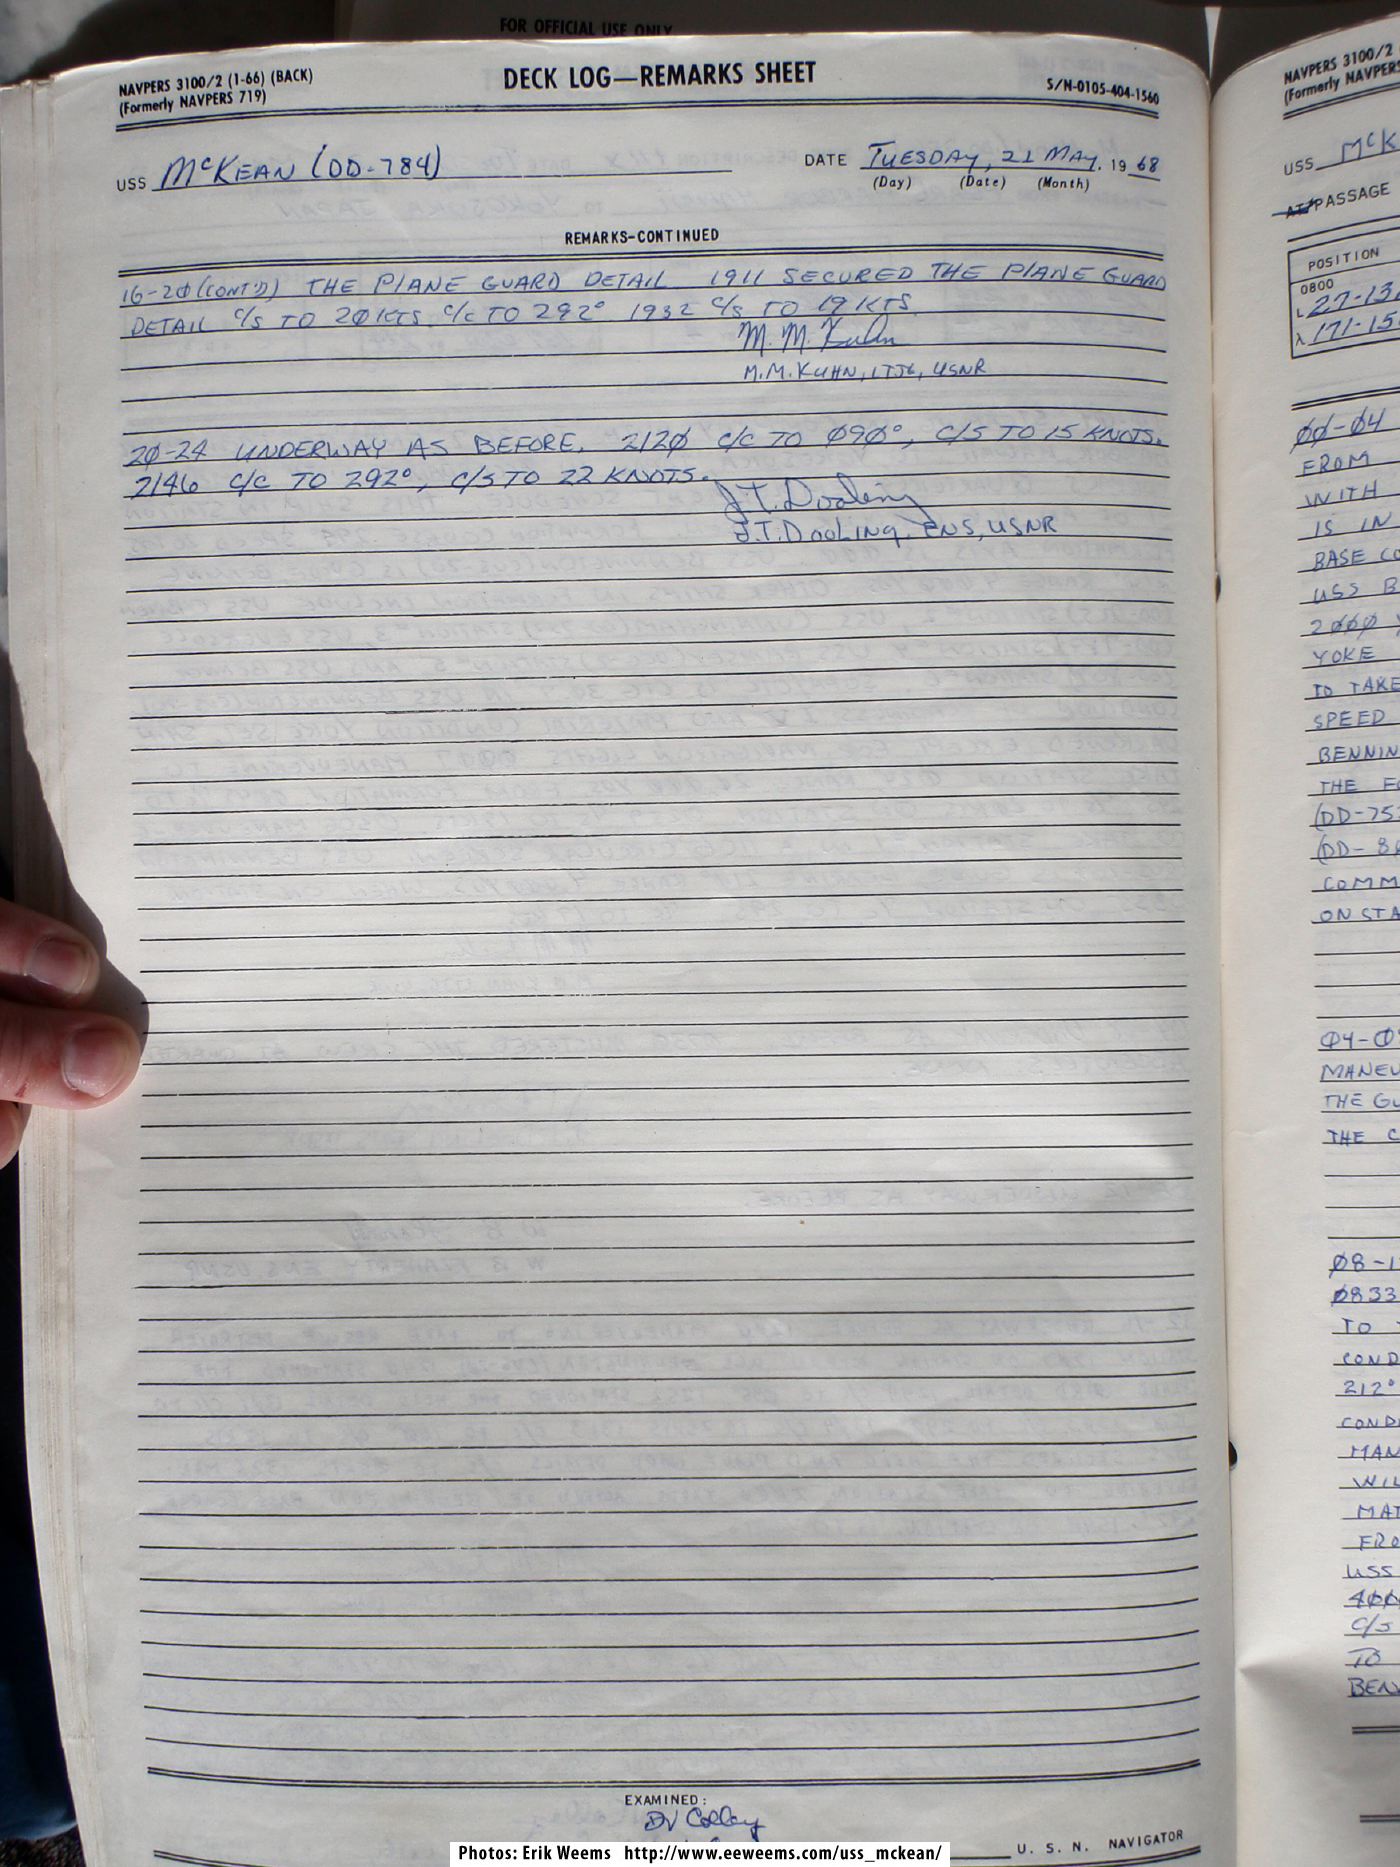 FOR OFFICIAL USE ONLY
NAVPERS 3100/2 (1-66) (BACK)
(Formerly NAVPERS 719)
DECK LOG—REMARKS SHEET
S/N-0105-404-1560
USS McKEAN (DD-784)
DATE TUESDAY, 21 MAY, 1968
(Day) (Date) (Month)
REMARKS-CONTINUED
16-2Ø (CONT'D) THE PLANE GUARD DETAIL 1911 SECURED THE PLANE GUARD
DETAIL C/S TO 2Ø KTS. C/C TO 292° 1932 C/S TO 19 KTS.
M. M. Kuhn
M.M. KUHN, LTJG, USNR
2Ø-24 UNDERWAY AS BEFORE. 212Ø C/C TO Ø9Ø°, C/S TO 15 KNOTS.
2146 C/C TO 292°, C/S TO 22 KNOTS.
J.T. Dooling
J.T. DOOLING, ENS, USNR
EXAMINED:
U. S. N. NAVIGATOR
Photos: Erik Weems http://www.eeweems.com/uss_mckean/
NAVPERS 3100/2
(Formerly NAVPERS
USS McK
AT/PASSAGE
POSITION
0800
L 27-13
λ 171-15
ØØ-Ø4
FROM
WITH
IS IN
BASE CO
USS B
2ØØØ
YOKE
TO TAKE
SPEED
BENNIN
THE FO
(DD-75
(DD-86
COMM
ON STA
Ø4-Ø
MANEU
THE GU
THE C
Ø8-1
Ø833
TO
COND
212°
COND
MAN
WIL
MAT
FRO
USS
4ØØ
C/S
TO
BEN